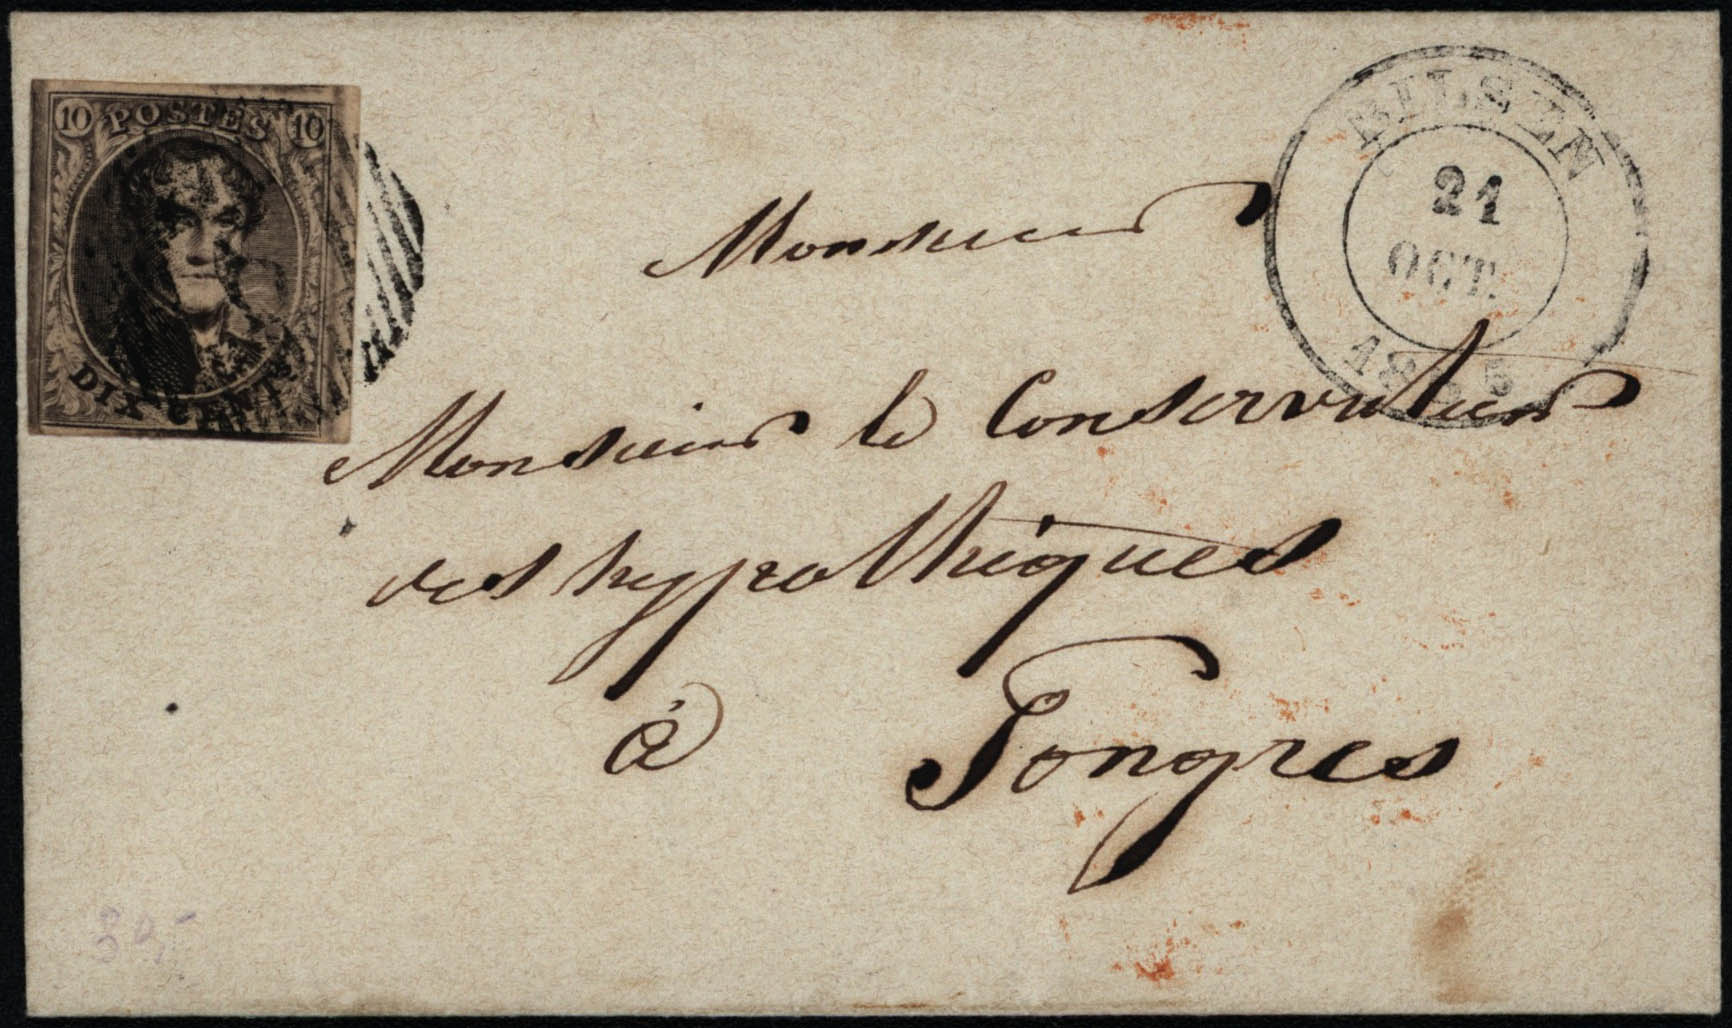 10 POSTES 10
DIX CENTS
BILSEN
21
OCT.
Monsieur
Monsieur le Conservateur
des hypothèques
à Tongres